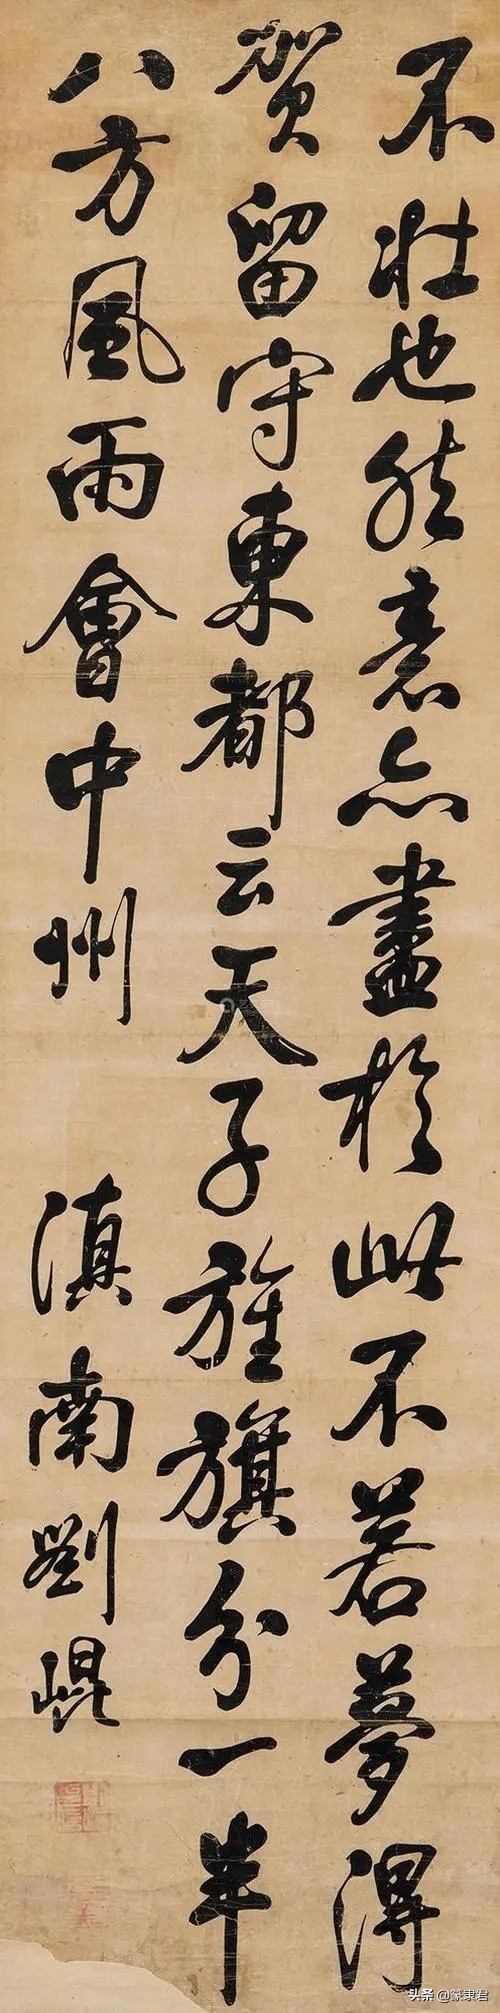 不壯也然意亦盡於此不若夢得
賀留守東都云天子旌旗分一半
八方風雨會中州
滇南劉崐
头条 @篆隶君